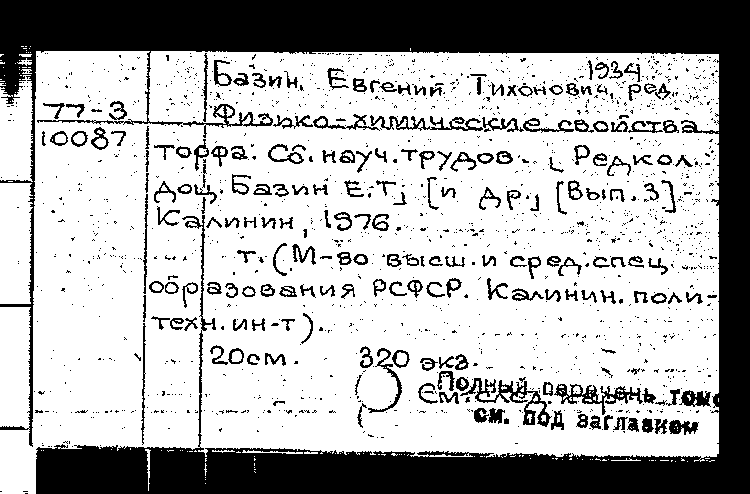 1934
Базин, Евгений Тихонович, ред.
77-3 Физико-химические свойства
10087 торфа. Сб. науч. трудов. [Редкол.:
доц. Базин Е.Т.] [и др.] [Вып. 3] -
Калинин, 1976.
т. (М-во высш. и сред. спец.
образования РСФСР. Калинин. поли-
техн. ин-т).
20см. 320 экз.
См. след. карт.
Полный перечень томо
см. под заглавием